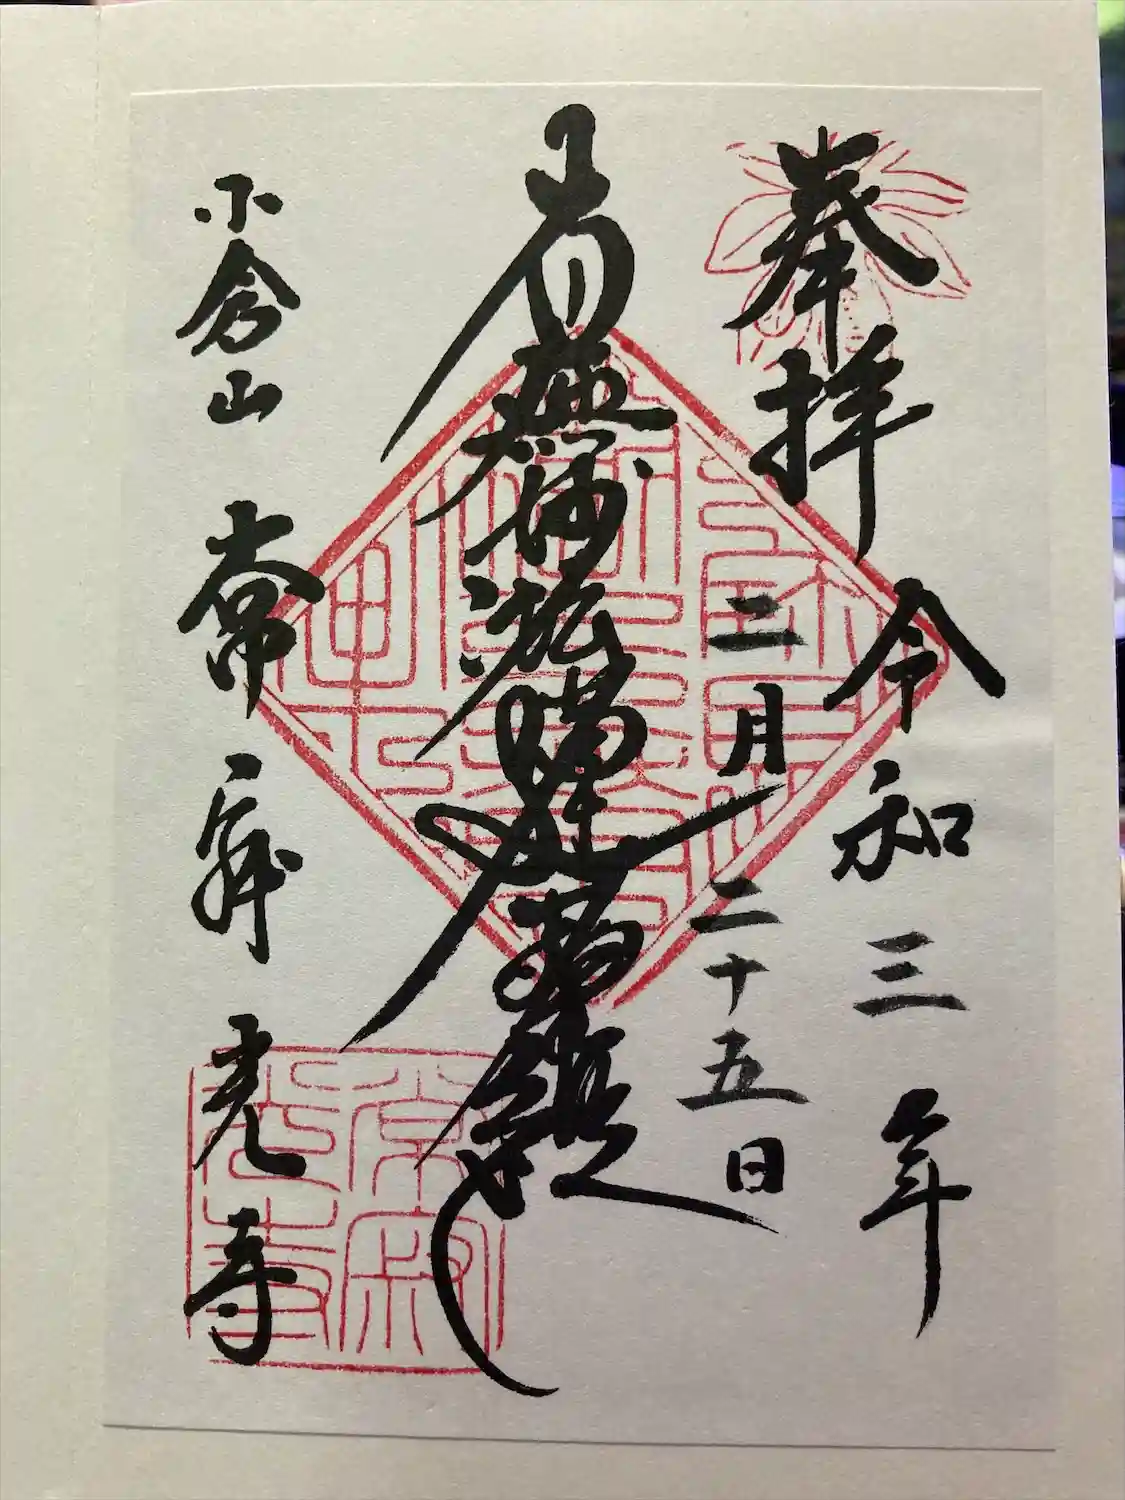 奉拝 令和三年
二月二十五日
南無妙法蓮華経
小倉山 常寂光寺
常寂光寺